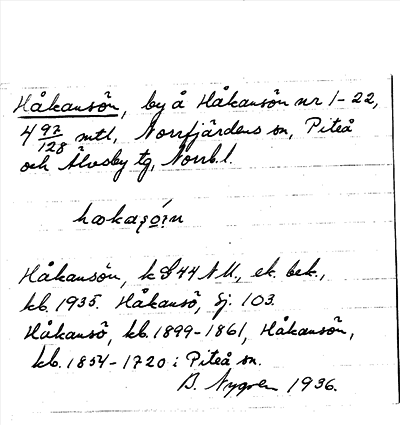 Håkansön, by å Håkansön nr 1-22,
4 97/128 mtl, Norrfjärdens sn, Piteå
och Älvsby tg, Norrb.l.
Håkansön, k 844 NU, ek. bek.,
kb. 1935. Håkansö, Sj. 103.
Håkansö, kb. 1899-1861, Håkansön,
kb. 1854-1720 i Piteå sn.
B. Nygren 1936.